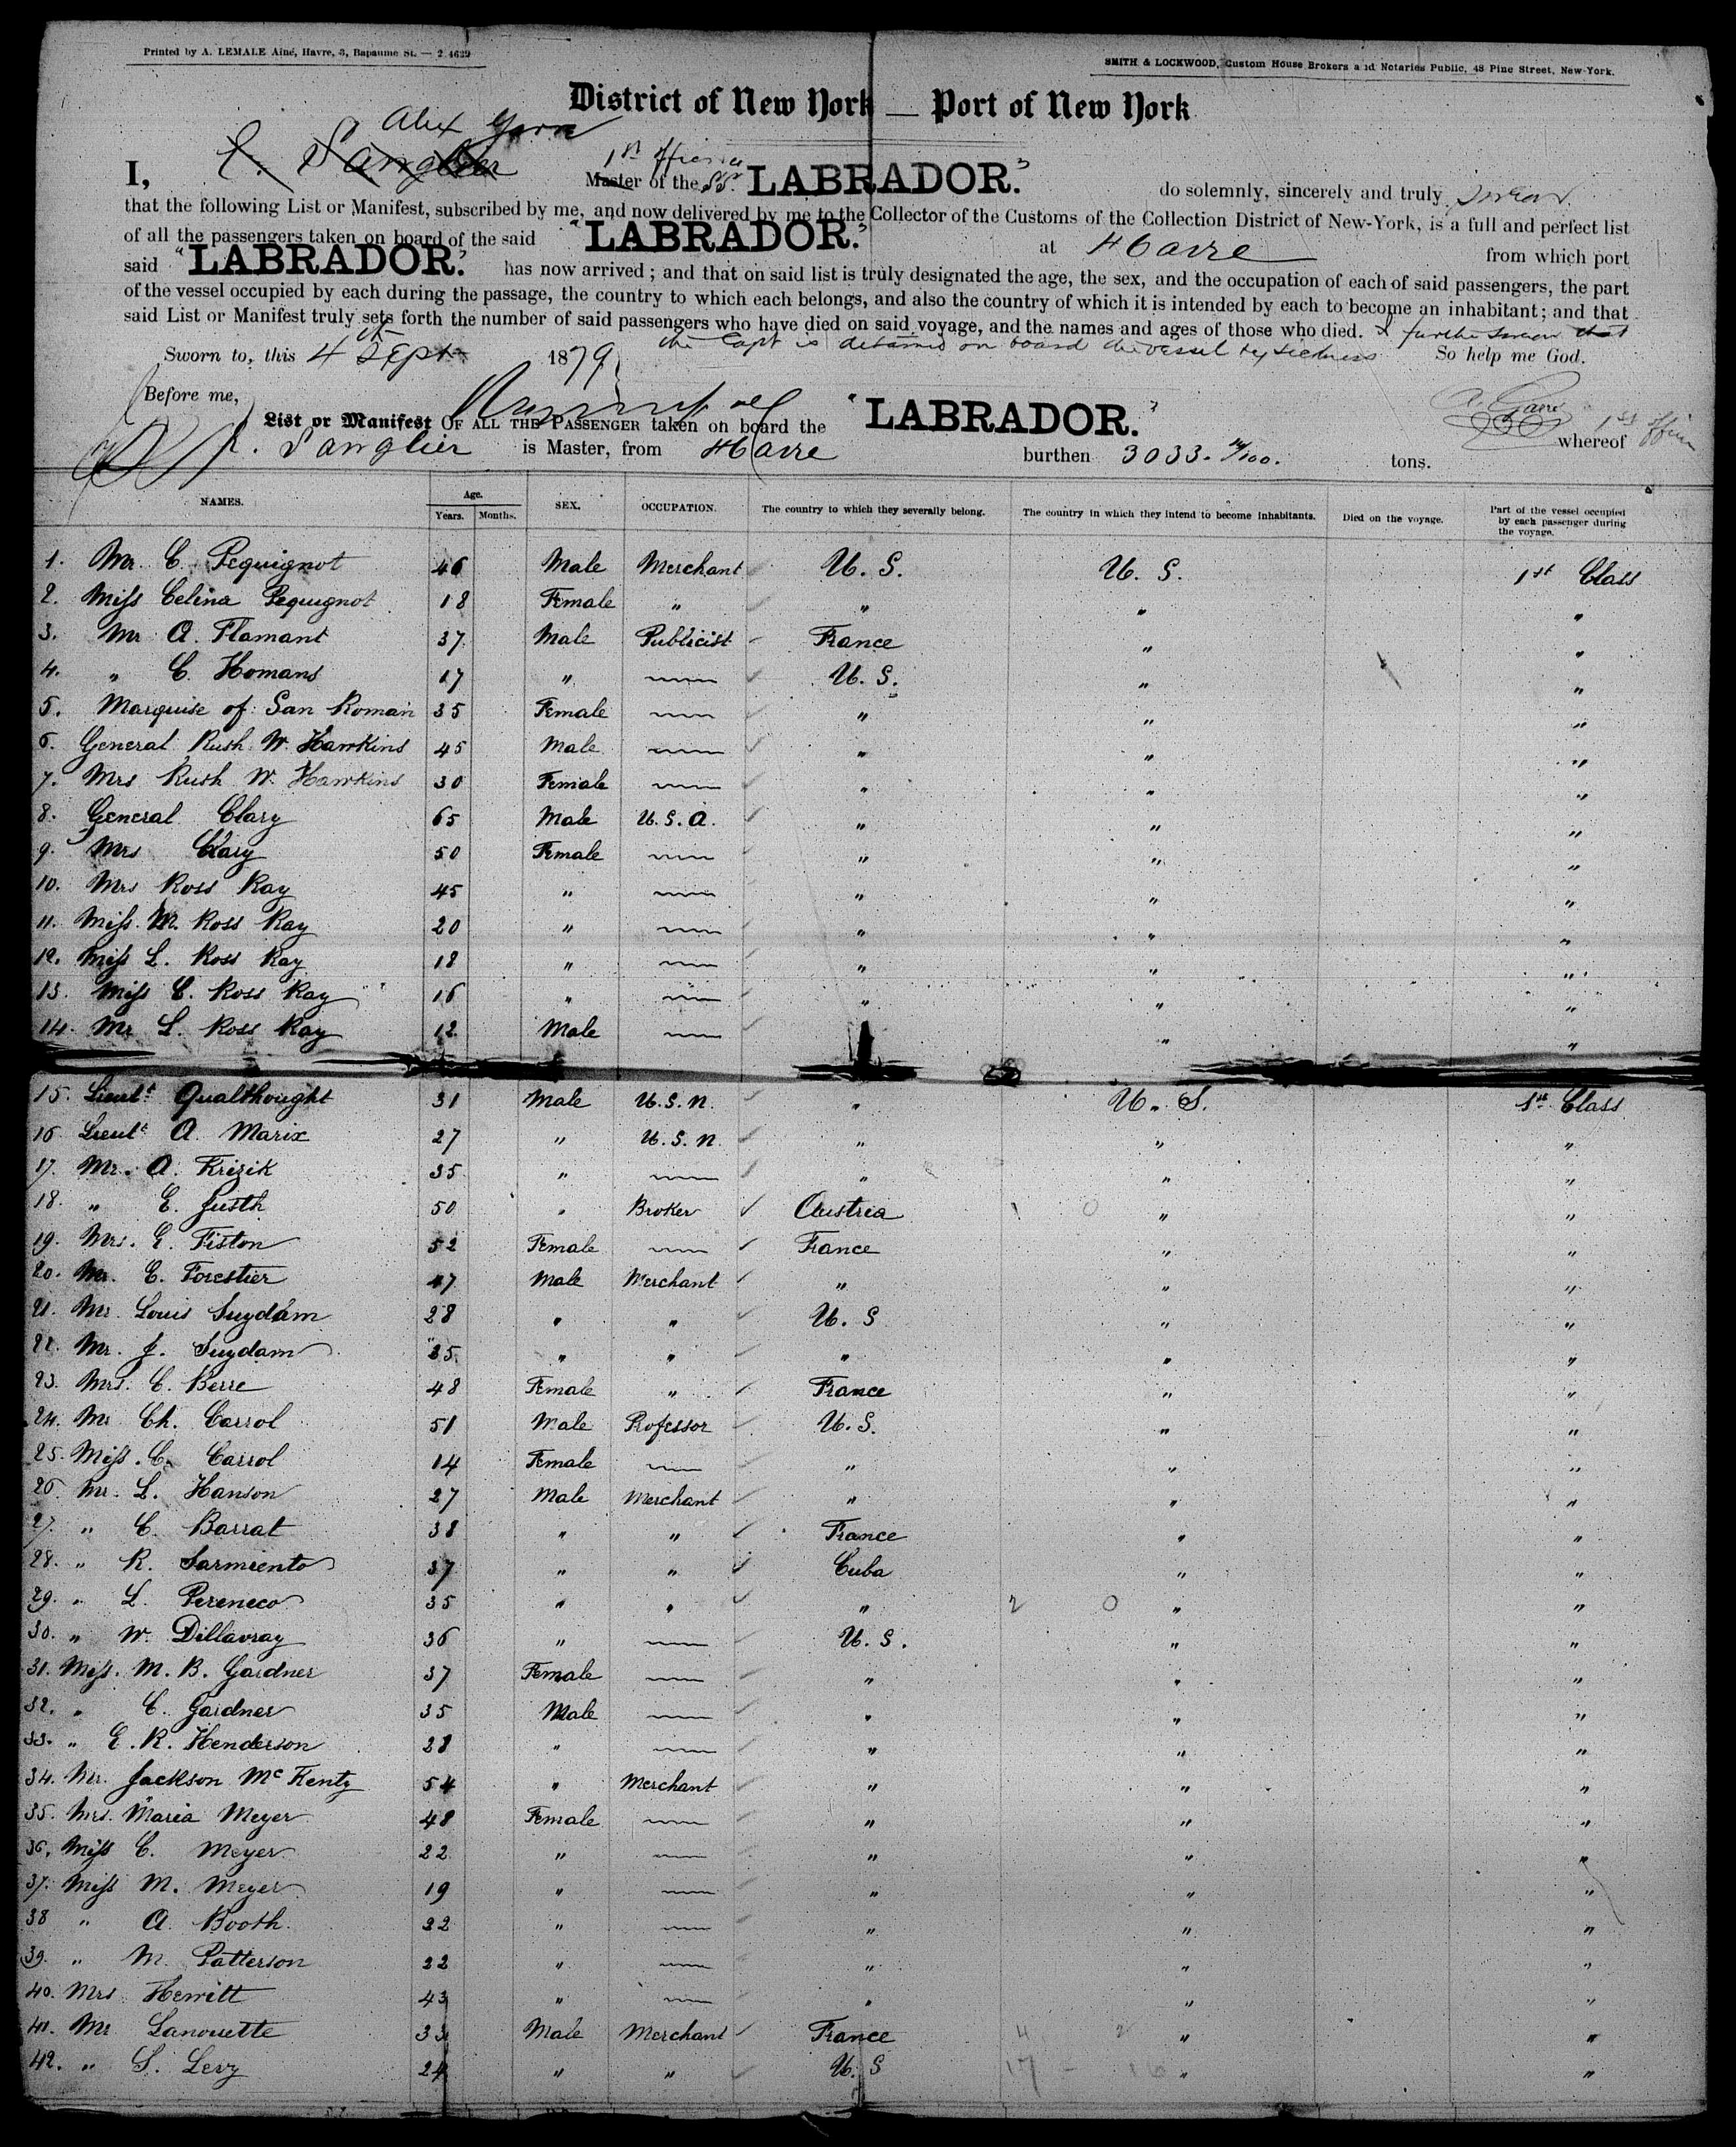 Printed by A. LEMALE Ainé, Havre, 3, Bapaume St. — 2 4629
SMITH & LOCKWOOD, Custom House Brokers and Notaries Public, 48 Pine Street, New-York.
District of New York — Port of New York
Alex
I, Sanglier 1st officer Master of the SS. "LABRADOR." do solemnly, sincerely and truly swear
that the following List or Manifest, subscribed by me, and now delivered by me to the Collector of the Customs of the Collection District of New-York, is a full and perfect list
of all the passengers taken on board of the said "LABRADOR." at Havre from which port
said "LABRADOR." has now arrived; and that on said list is truly designated the age, the sex, and the occupation of each of said passengers, the part
of the vessel occupied by each during the passage, the country to which each belongs, and also the country of which it is intended by each to become an inhabitant; and that
said List or Manifest truly sets forth the number of said passengers who have died on said voyage, and the names and ages of those who died. I further swear that
the Capt is detained on board the vessel by sickness So help me God.
Sworn to, this 4th Sept 1879
Before me,
List or Manifest OF ALL THE PASSENGER taken on board the "LABRADOR." 1st officer whereof
Sanglier is Master, from Havre burthen 3033. /100. tons.
NAMES. Age. Years. Months. SEX. OCCUPATION. The country to which they severally belong. The country in which they intend to become inhabitants. Died on the voyage. Part of the vessel occupied by each passenger during the voyage.
1. Mr. C. Pequignot 46 Male Merchant U. S. U. S. 1st Class
2. Miss Celina Pequignot 18 Female " " " "
3. Mr A. Flamant 37 Male Publicist France " "
4. " C. Homans 17 " U. S. " "
5. Marquise of San Roman 35 Female " " "
6. General Rush W. Hawkins 45 Male " " "
7. Mrs Rush W. Hawkins 30 Female " " "
8. General Clary 65 Male U. S. A. " " "
9. Mrs Clary 50 Female " " "
10. Mrs Ross Ray 45 " " " "
11. Miss M. Ross Ray 20 " " " "
12. Miss L. Ross Ray 18 " " " "
13. Miss C. Ross Ray 16 " " " "
14. Mr L. Ross Ray 12 Male " "
15. Lieut. Qualthought 31 Male U. S. N. " U. S. 1st Class
16 Lieut. A. Marix 27 " U. S. N. " " "
17. Mr. A. Krizik 35 " " " "
18. " E. Justh 50 " Broker Austria " "
19. Mrs. E. Fiston 52 Female France " "
20. Mr. E. Forestier 47 Male Merchant " " "
21. Mr. Louis Suydam 28 " " U. S " "
22. Mr. J. Suydam 25 " " " " "
23. Mrs. C. Berre 48 Female " France " "
24. Mr Ch. Carrol 51 Male Professor U. S. " "
25. Miss. C. Carrol 14 Female " " "
26. Mr. L. Hanson 27 Male Merchant " " "
27. " C. Barrat 38 " " France " "
28. " R. Sarmiento 37 " " Cuba " "
29. " L. Pereneco 35 " " " 2 0 " "
30. " W. Dillavray 36 " U. S. " "
31. Miss. M. B. Gardner 37 Female " " "
32. " C. Gardner 35 Male " " "
33. " E. R. Henderson 28 " " " "
34. Mr. Jackson Mc Kenty 54 " Merchant " " "
35. Mrs. Maria Meyer 48 Female " " "
36. Miss C. Meyer 22 " " " "
37. Miss M. Meyer 19 " " " "
38 " A. Booth. 22 " " " "
39. " M. Patterson 22 " " " "
40. Mrs Hewitt 43 " " " "
41. Mr Lanouette 33 Male Merchant France 4 2 " "
42. " S. Levy 24 " " U. S 17 - 16 " "